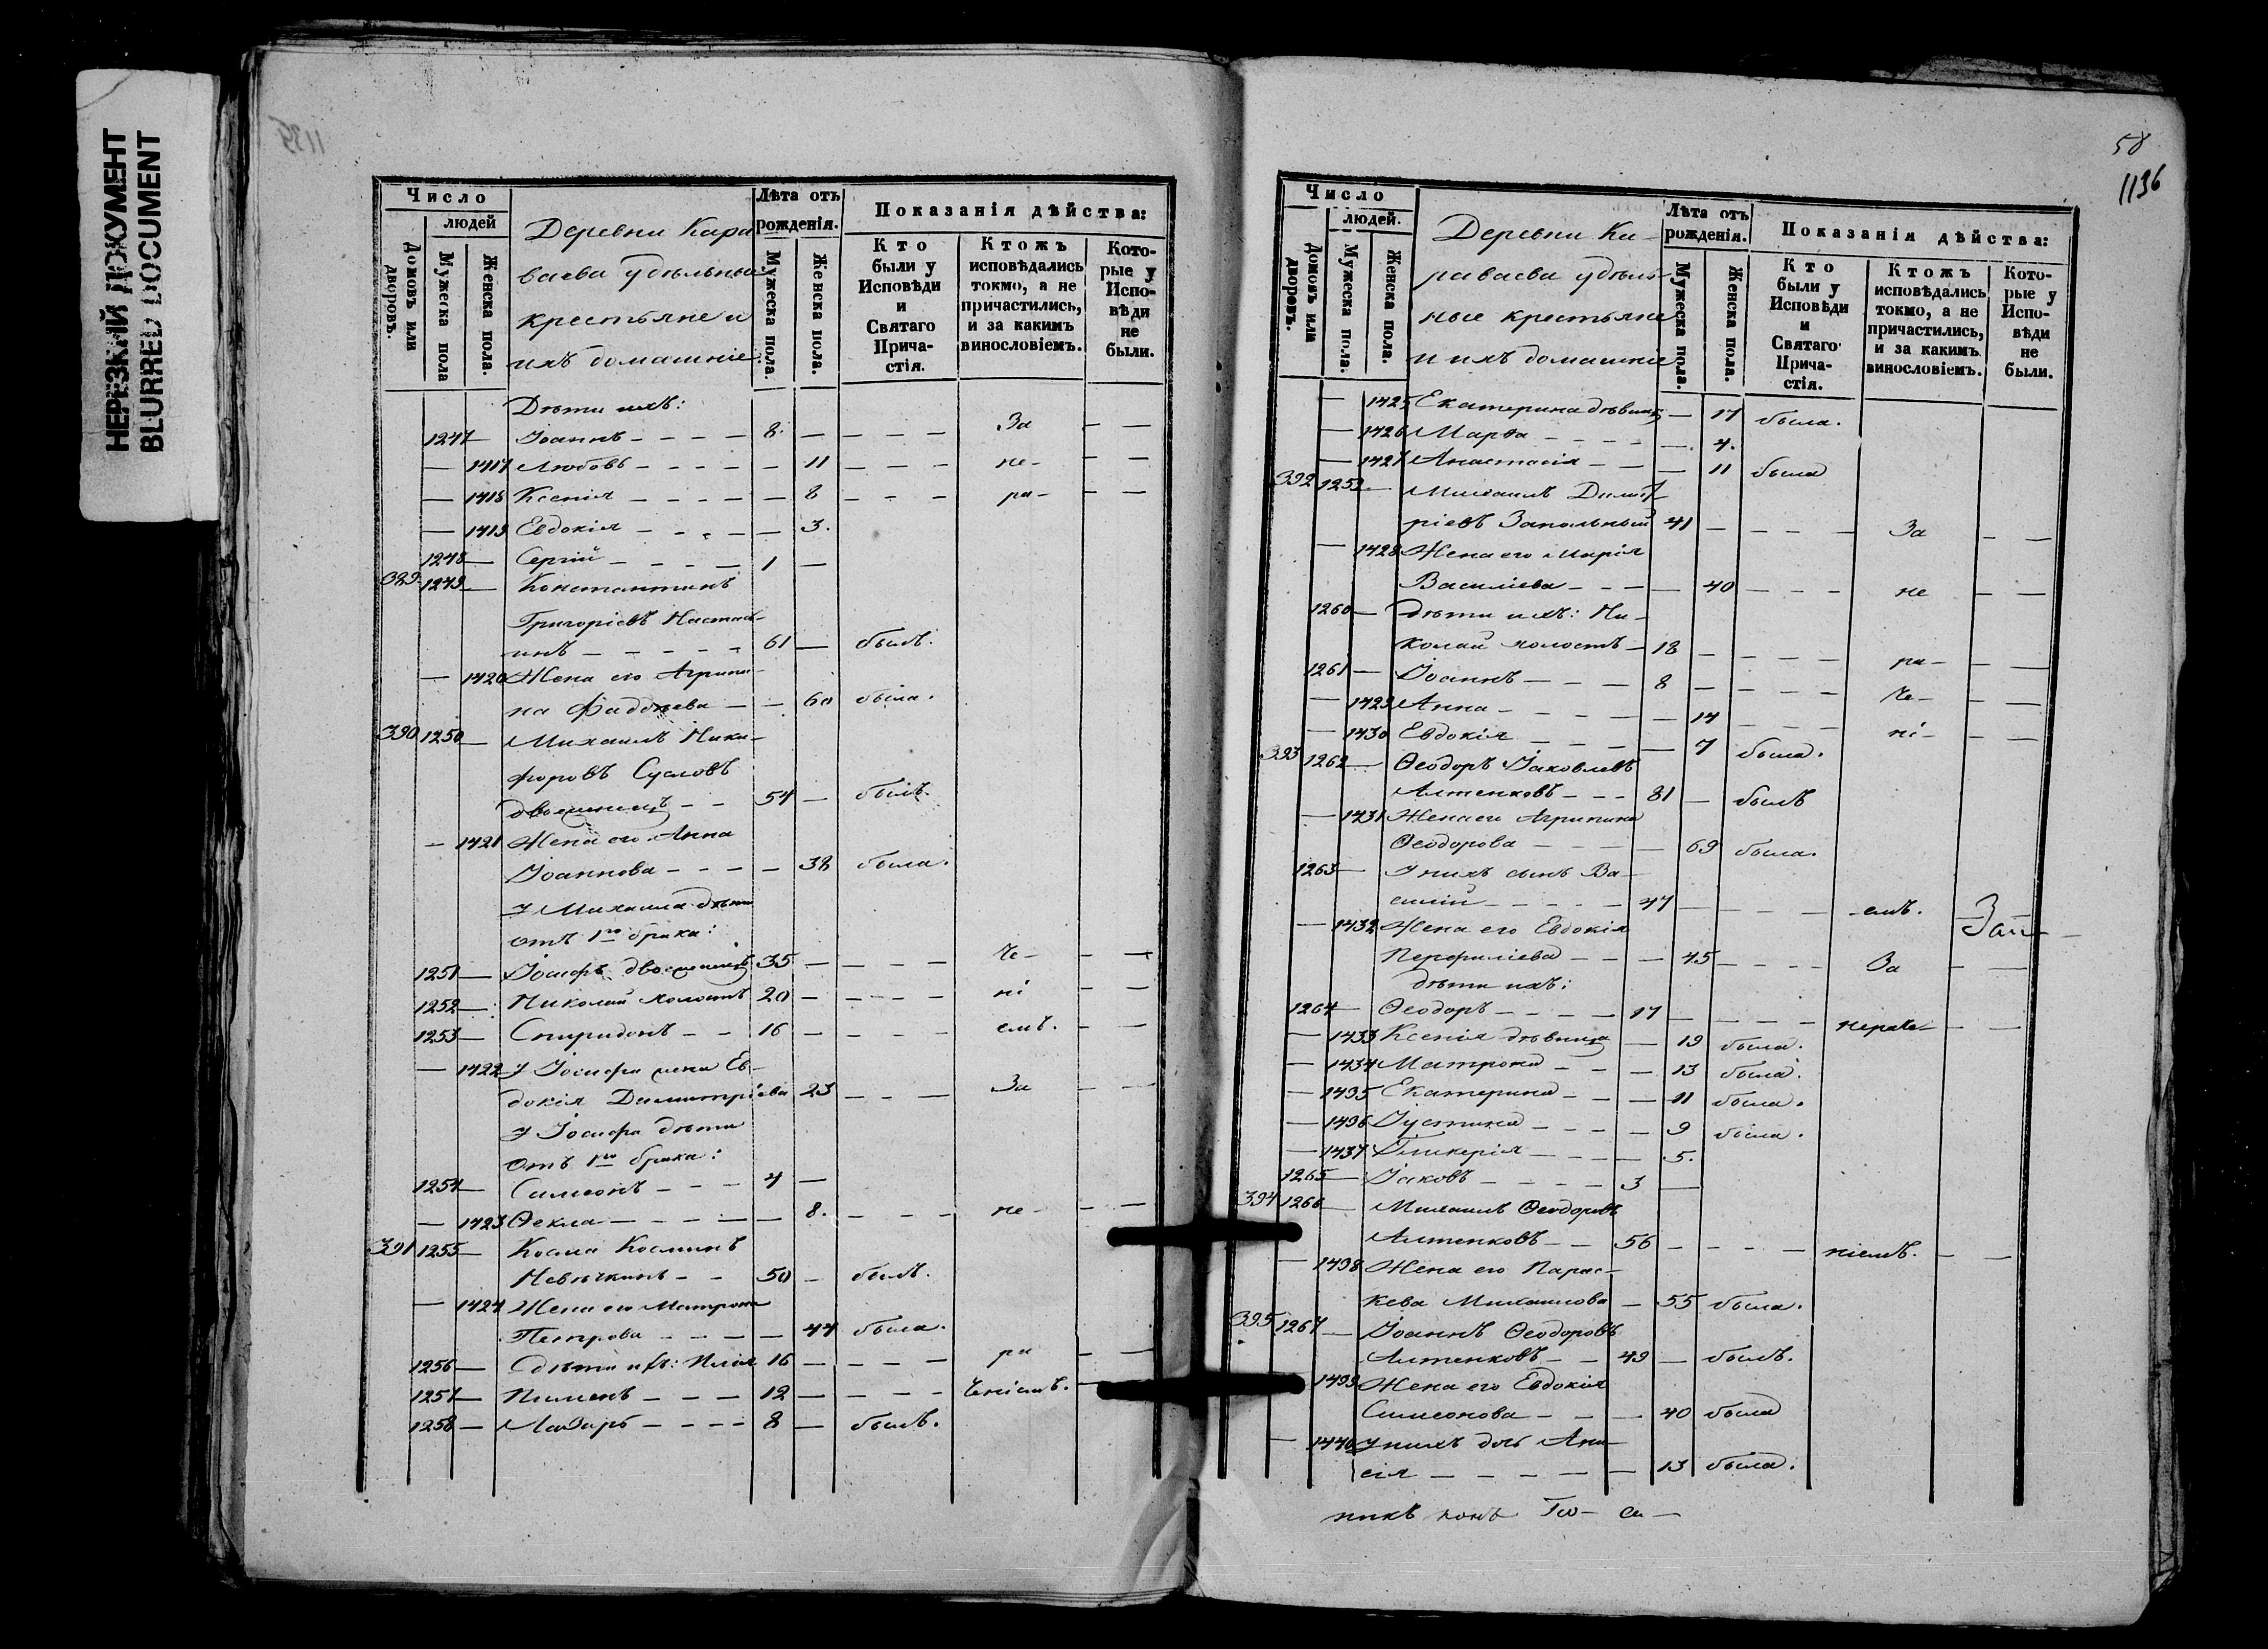 НЕРЕЗКИЙ ДОКУМЕНТ
BLURRED DOCUMENT
1135
Число
людей
Домовъ или дворовъ.
Мужеска пола
Женска пола.
Деревни Кара
ваева удѣльные
крестьяне и
ихъ домашніе
Лѣта отъ рожденія.
Мужеска пола.
Женска пола.
Показанія дѣйства:
Кто были у Исповѣди и Святаго Прича-стія.
Ктожъ исповѣдались токмо, а не причастились, и за какимъ винословіемъ.
Кото-рые у Испо-вѣди не были.
Дѣти ихъ:
1247 — Іоаннъ - - - - 8. — — — — За — —
— 1417 Любовь - - - - — 11 — — — не- — —
— 1418 Ксенія - - - - — 8 — — — ра- — —
— 1419 Евдокія - - - - — 3.
1248 — Сергій - - - - 1 —
389 1249 — Константинъ
Григорьевъ
инъ - - - - - 61 — былъ.
— 1420 Жена его Агрипи-
на Фаддѣева — — 60 была.
390 1250 — Михаилъ Ники-
форовъ Сусловъ
двоеженецъ - - 54 — былъ.
— 1421 Жена его Анна
Іоаннова - - - — 38 была.
У Михаила дѣти
отъ 1го брака:
1251 — Іосифъ двоеженецъ 35 — — — — че- — —
1252 — Николай холостъ 20 — — — — ні — —
1253 — Спиридонъ - - 16 — — — — емъ. — —
— 1422 У Іосифа жена Ев-
докія Димитріева 23 — — — За — —
У Іосифа дѣти
отъ 1го брака:
1254 — Симеонъ - - - 4 —
— 1423 Ѳекла - - - - — 8. — — — не- — —
391 1255 — Косма Косминъ
- - 50 — былъ.
— 1424 Жена его Матрона
Петрова - - - — 44 была.
1256 — дѣти ихъ: Илія 16 — — — — ра — —
1257 — Пименъ - - - 12 — — — — ченіемъ. —
1258 — Лазарь - - - - 8 — былъ.
58
1136
Число
людей.
Домовъ или дворовъ.
Мужеска пола.
Женска пола.
Деревни Ка-
раваева удѣль-
ные крестьяне
и ихъ домашніе
Лѣта отъ рожденія.
Мужеска пола.
Женска пола.
Показанія дѣйства:
Кто были у Исповѣди и Святаго Прича-стія.
Ктожъ исповѣдались токмо, а не причастились, и за какимъ винословіемъ.
Кото-рые у Испо-вѣди не были.
— 1425 Екатерина дѣвица — 17 была.
— 1426 Марѳа - - - - — 4.
— 1427 Анастасія - - — 11 была
392 1259 — Михаилъ Димит-
ріевъ Запольный 41 — — — — За — —
— 1428 Жена его Марія
Василіева - - - — 40 — — — не — —
1260 — дѣти ихъ: Ни-
колай холостъ - 18 — — — — ра- — —
1261 — Іоаннъ - - - 8 — — — — че- — —
— 1429 Анна - - - - — 14 — — — ні- — —
— 1430 Евдокія - - - — 7 была.
393 1262 — Ѳеодоръ Іаковлевъ
Алтенковъ - - - 81 — былъ
— 1431 Жена его Агрипина
Ѳеодорова - - - — 69 была.
1263 — У нихъ сынъ Ва-
силій - - - - - 47 — — — — емъ. —
— 1432 Жена его Евдокія
Перфиліева - - — 45 — — — За — —
дѣти ихъ:
1264 — Ѳеодоръ - - - - 17 — — — — нераче- — —
— 1433 Ксенія дѣвица — 19 была.
— 1434 Матрона - - — 13 была.
— 1435 Екатерина - - — 11 была.
— 1436 Іустина - - - — 9 была.
— 1437 Гликерія - - - — 5.
1265 — Іаковъ - - - - 3 —
394 1266 — Михаилъ Ѳеодоровъ
Алтенковъ - - 56 — — — — ніемъ. — —
— 1438 Жена его Парас-
кева Михаилова — 55 была.
395 1267 — Іоаннъ Ѳеодоровъ
Алтенковъ - - 49 — былъ.
1439 Жена его Евдокія
Симеонова - - — 40 была
— 1440 У нихъ дочь Ани-
сія - - - - - — 13 была.